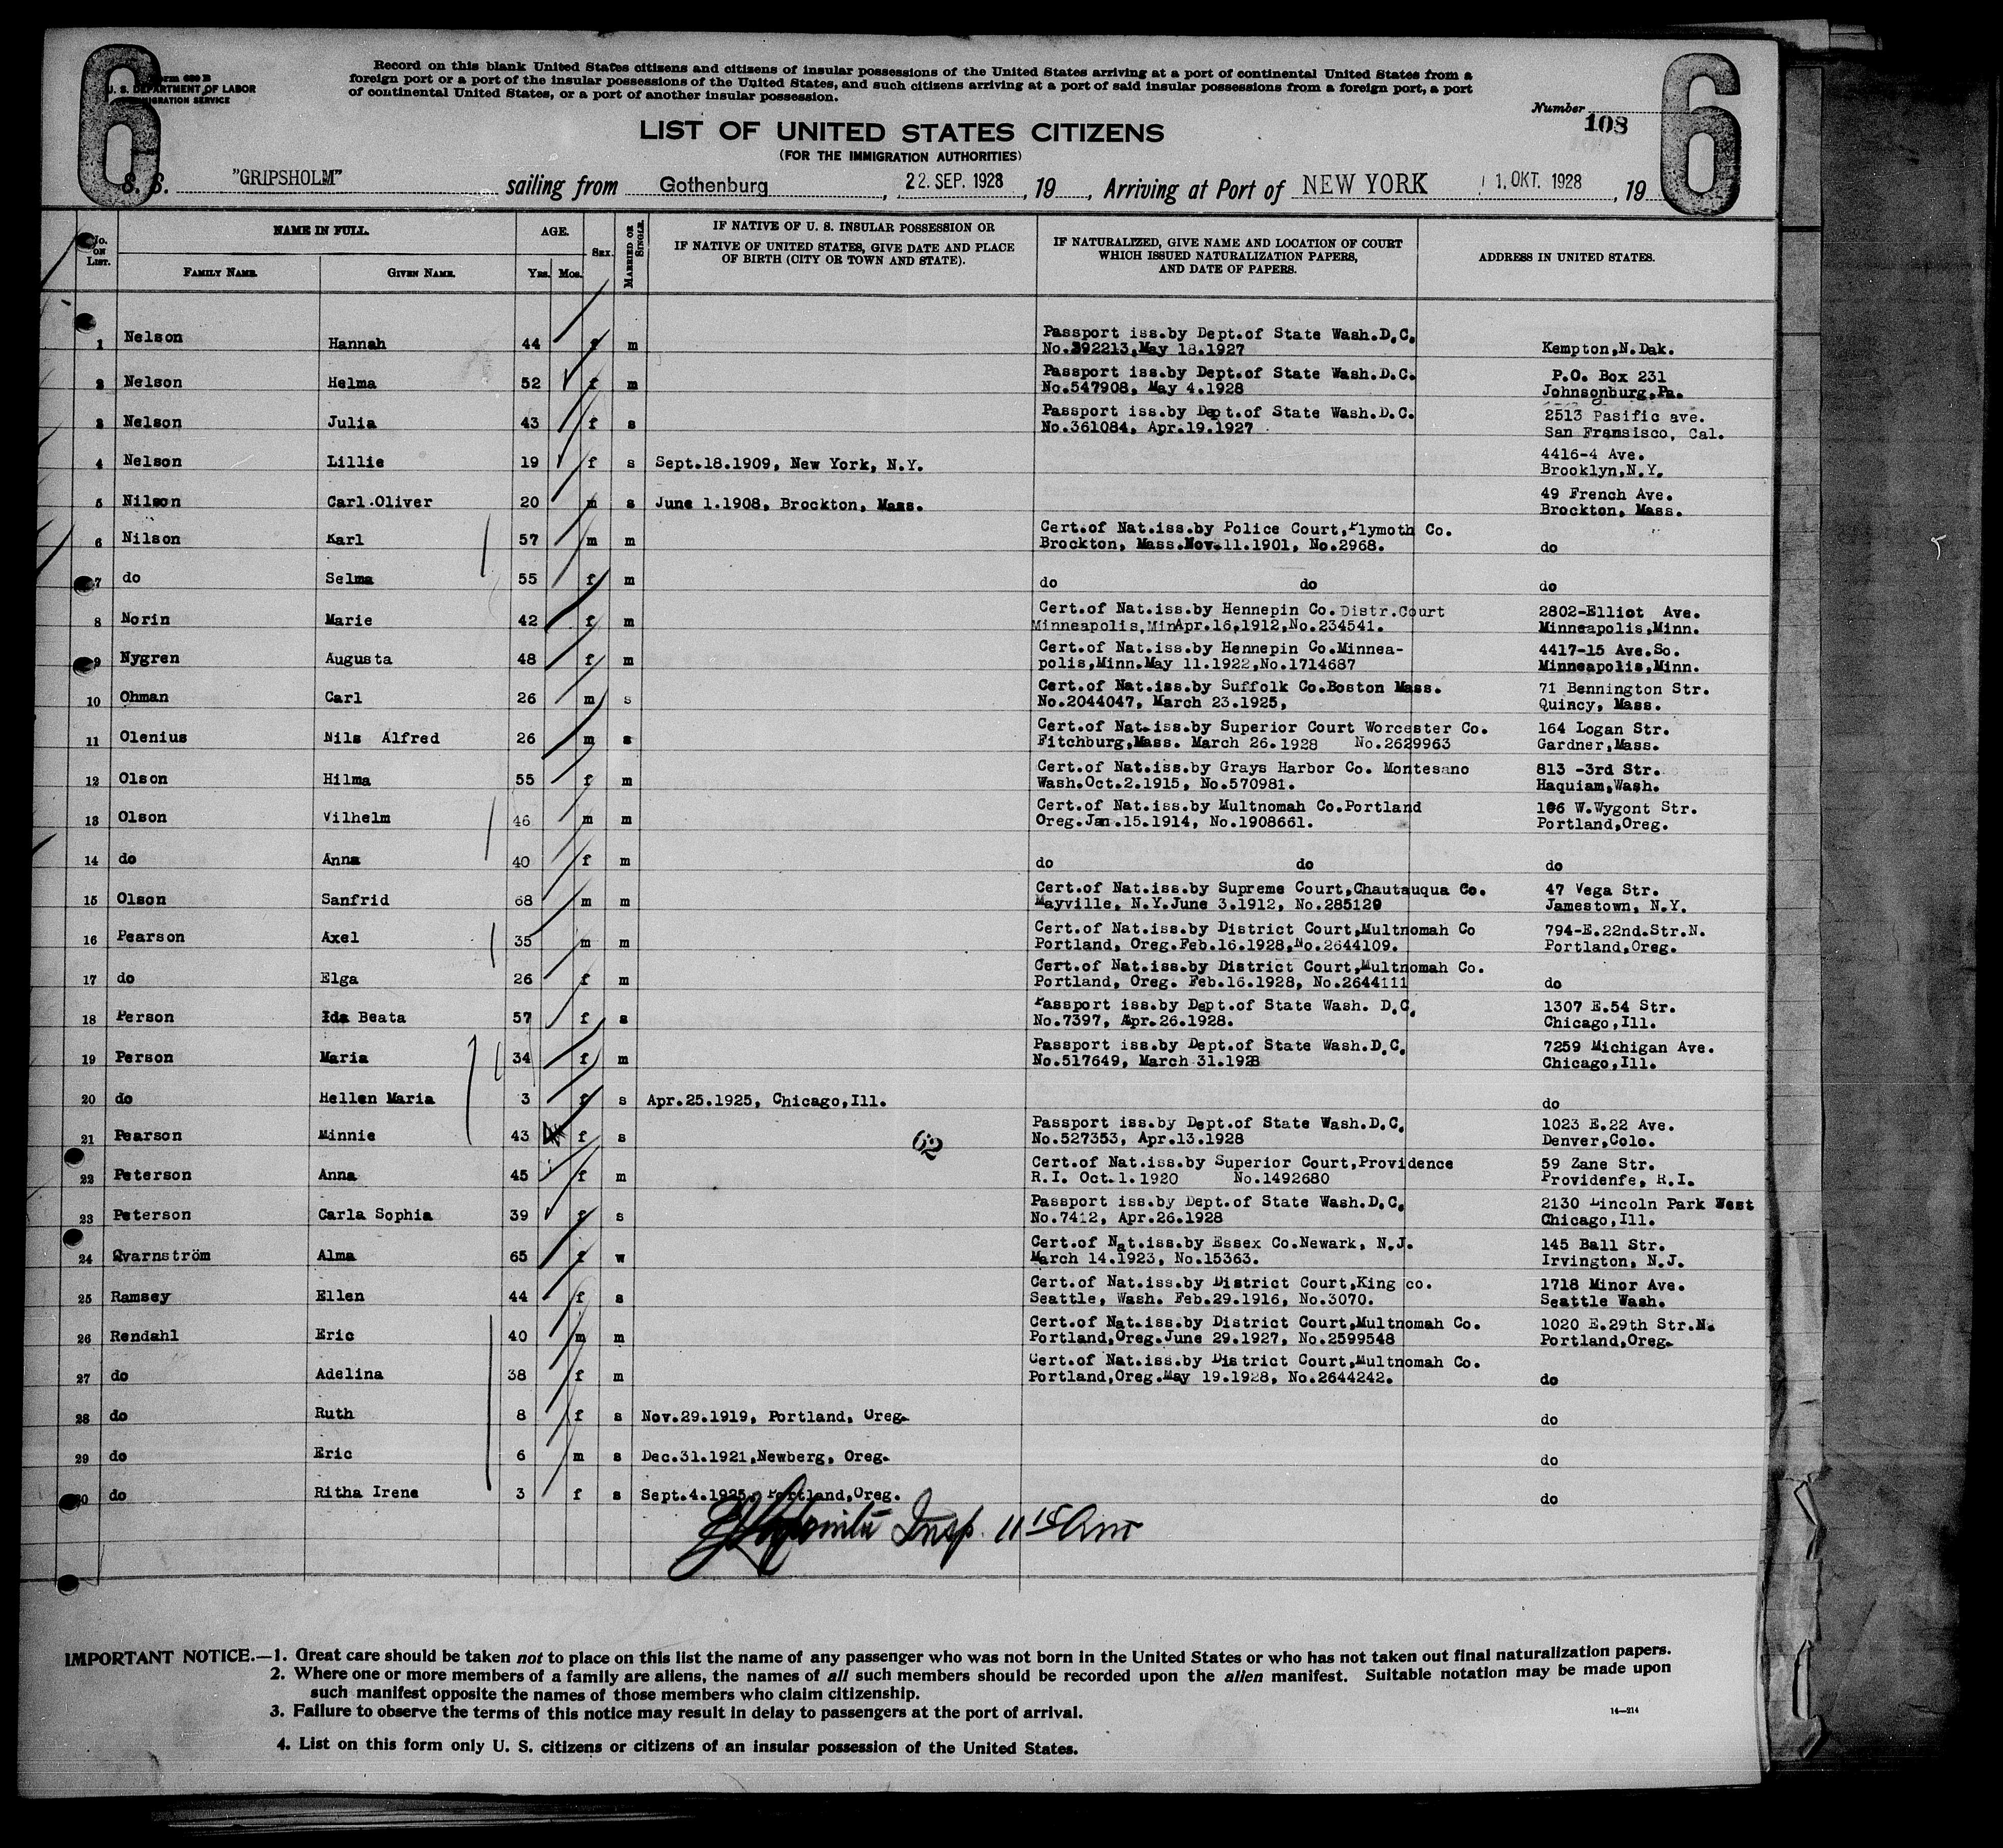 6
6
Form 630 B
U. S. DEPARTMENT OF LABOR
IMMIGRATION SERVICE
Record on this blank United States citizens and citizens of insular possessions of the United States arriving at a port of continental United States from a
foreign port or a port of the insular possessions of the United States, and such citizens arriving at a port of said insular possessions from a foreign port, a port
of continental United States, or a port of another insular possession.
Number
108
LIST OF UNITED STATES CITIZENS
(FOR THE IMMIGRATION AUTHORITIES)
S. S. "GRIPSHOLM" sailing from Gothenburg, 22. SEP. 1928, 19, Arriving at Port of NEW YORK 1. OKT. 1928, 19
No. ON LIST.
NAME IN FULL.
FAMILY NAME. GIVEN NAME.
AGE.
YRS. MOS.
SEX.
MARRIED OR SINGLE.
IF NATIVE OF U. S. INSULAR POSSESSION OR
IF NATIVE OF UNITED STATES, GIVE DATE AND PLACE
OF BIRTH (CITY OR TOWN AND STATE).
IF NATURALIZED, GIVE NAME AND LOCATION OF COURT
WHICH ISSUED NATURALIZATION PAPERS,
AND DATE OF PAPERS.
ADDRESS IN UNITED STATES.
1 Nelson Hannah 44 f m Passport iss.by Dept.of State Wash.D.C.
No.392213,May 18.1927 Kempton,N.Dak.
2 Nelson Helma 52 f m Passport iss.by Dept.of State Wash.D.C. P.O. Box 231
No.547908, May 4.1928 Johnsonburg,Pa.
3 Nelson Julia 43 f s Passport iss.by Dept.of State Wash.D.C. 2513 Pasific ave.
No.361084, Apr.19.1927 San Fransisco, Cal.
4 Nelson Lillie 19 f s Sept.18.1909, New York, N.Y. 4416-4 Ave.
Brooklyn,N.Y.
5 Nilson Carl.Oliver 20 m s June 1.1908, Brockton, Mass. 49 French Ave.
Brockton, Mass.
6 Nilson Karl 57 m m Cert.of Nat.iss.by Police Court,Plymoth Co.
Brockton, Mass.Nov.11.1901, No.2968. do
7 do Selma 55 f m do do do
8 Norin Marie 42 f m Cert.of Nat.iss.by Hennepin Co. Distr.Court 2802-Elliot Ave.
Minneapolis,MinApr.16,1912,No.234541. Minneapolis,Minn.
9 Nygren Augusta 48 f m Cert.of Nat.iss.by Hennepin Co.Minnea- 4417-15 Ave.So.
polis,Minn.May 11.1922,No.1714687 Minneapolis,Minn.
10 Ohman Carl 26 m s Cert.of Nat.iss.by Suffolk Co.Boston Mass. 71 Bennington Str.
No.2044047, March 23.1925, Quincy, Mass.
11 Olenius Nils Alfred 26 m s Cert.of Nat.iss.by Superior Court Worcester Co. 164 Logan Str.
Fitchburg,Mass. March 26.1928 No.2629963 Gardner,Mass.
12 Olson Hilma 55 f m Cert.of Nat.iss.by Grays Harbor Co. Montesano 813 -3rd Str.
Wash.Oct.2.1915, No.570981. Haquiam,Wash.
13 Olson Vilhelm 46 m m Cert.of Nat.iss.by Multnomah Co.Portland 106 W.Wygont Str.
Oreg.Jan.15.1914, No.1908661. Portland,Oreg.
14 do Anna 40 f m do do do
15 Olson Sanfrid 68 m m Cert.of Nat.iss.by Supreme Court,Chautauqua Co. 47 Vega Str.
Mayville, N.Y.June 3.1912, No.285129 Jamestown, N.Y.
16 Pearson Axel 35 m m Cert.of Nat.iss.by District Court,Multnomah Co 794-E.22nd.Str.N.
Portland, Oreg.Feb.16.1928,No.2644109. Portland,Oreg.
17 do Elga 26 f m Cert.of Nat.iss.by District Court,Multnomah Co.
Portland, Oreg. Feb.16.1928, No.2644111 do
18 Person Ida Beata 57 f s Passport iss.by Dept.of State Wash. D.C. 1307 E.54 Str.
No.7397, Apr.26.1928. Chicago,Ill.
19 Person Maria 34 f m Passport iss.by Dept.of State Wash.D.C. 7259 Michigan Ave.
No.517649, March 31.1928 Chicago,Ill.
20 do Hellen Maria 3 f s Apr.25.1925, Chicago,Ill. do
21 Pearson Minnie 43 f s Passport iss.by Dept.of State Wash.D.C. 1023 E.22 Ave.
No.527353, Apr.13.1928 Denver,Colo.
62
22 Peterson Anna 45 f m Cert.of Nat.iss.by Superior Court,Providence 59 Zane Str.
R.I. Oct.1.1920 No.1492680 Providenfe, R.I.
23 Peterson Carla Sophia 39 f s Passport iss.by Dept.of State Wash.D.C. 2130 Lincoln Park West
No.7412, Apr.26.1928 Chicago,Ill.
24 Qvarnström Alma 65 f w Cert.of Nat.iss.by Essex Co.Newark, N.J. 145 Ball Str.
March 14.1923, No.15363. Irvington, N.J.
25 Ramsey Ellen 44 f s Cert.of Nat.iss.by District Court,King co. 1718 Minor Ave.
Seattle, Wash. Feb.29.1916, No.3070. Seattle Wash.
26 Rendahl Eric 40 m m Cert.of Nat.iss.by District Court,Multnomah Co. 1020 E.29th Str.N.
Portland,Oreg.June 29.1927, No.2599548 Portland,Oreg.
27 do Adelina 38 f m Cert.of Nat.iss.by District Court,Multnomah Co.
Portland,Oreg.May 19.1928, No.2644242. do
28 do Ruth 8 f s Nov.29.1919, Portland, Oreg. do
29 do Eric 6 m s Dec.31.1921,Newberg, Oreg. do
30 do Ritha Irene 3 f s Sept.4.1925, Portland,Oreg. do
Insp.
IMPORTANT NOTICE.—1. Great care should be taken not to place on this list the name of any passenger who was not born in the United States or who has not taken out final naturalization papers.
2. Where one or more members of a family are aliens, the names of all such members should be recorded upon the alien manifest. Suitable notation may be made upon
such manifest opposite the names of those members who claim citizenship.
3. Failure to observe the terms of this notice may result in delay to passengers at the port of arrival.
14—214
4. List on this form only U. S. citizens or citizens of an insular possession of the United States.